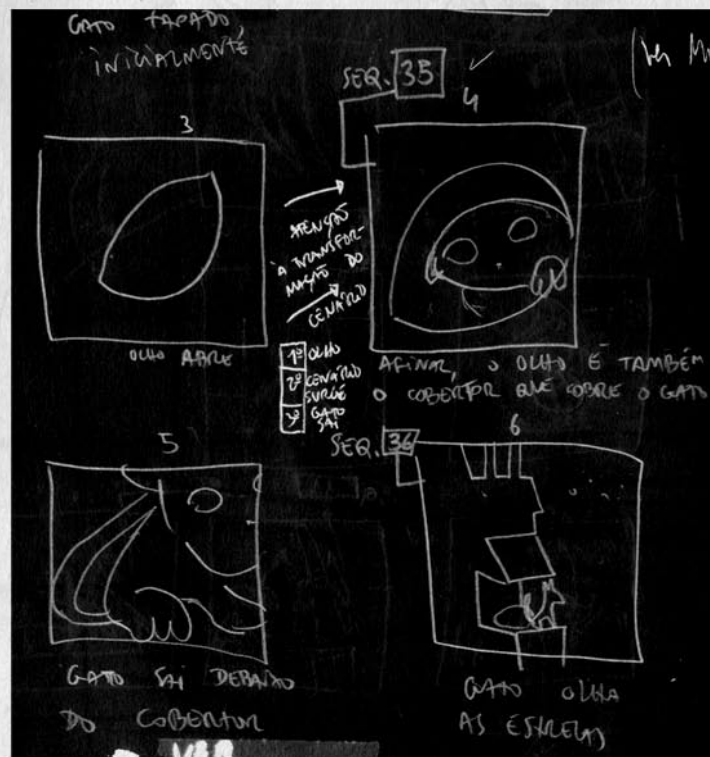 GATO TAPADO,
INICIALMENTE
SEQ. 35
4
3
ATENÇÃO
À TRANSFOR-
MAÇÃO DO
CENÁRIO
OLHO ABRE
1º OLHO
2º CENÁRIO
SURGE
3º GATO
SAI
AFINAL, O OLHO É TAMBÉM
O COBERTOR QUE COBRE O GATO
5
SEQ. 36
6
GATO SAI DEBAIXO
DO COBERTOR
GATO OLHA
AS ESTRELAS
VER